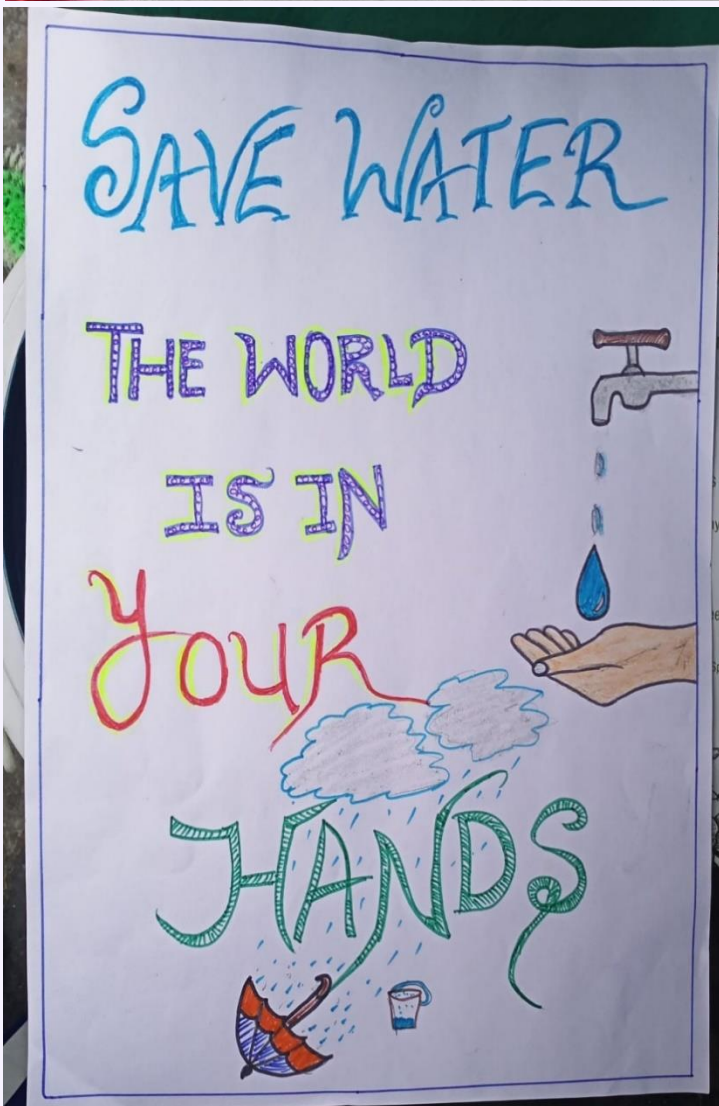 SAVE WATER
THE WORLD
IS IN
YOUR
HANDS